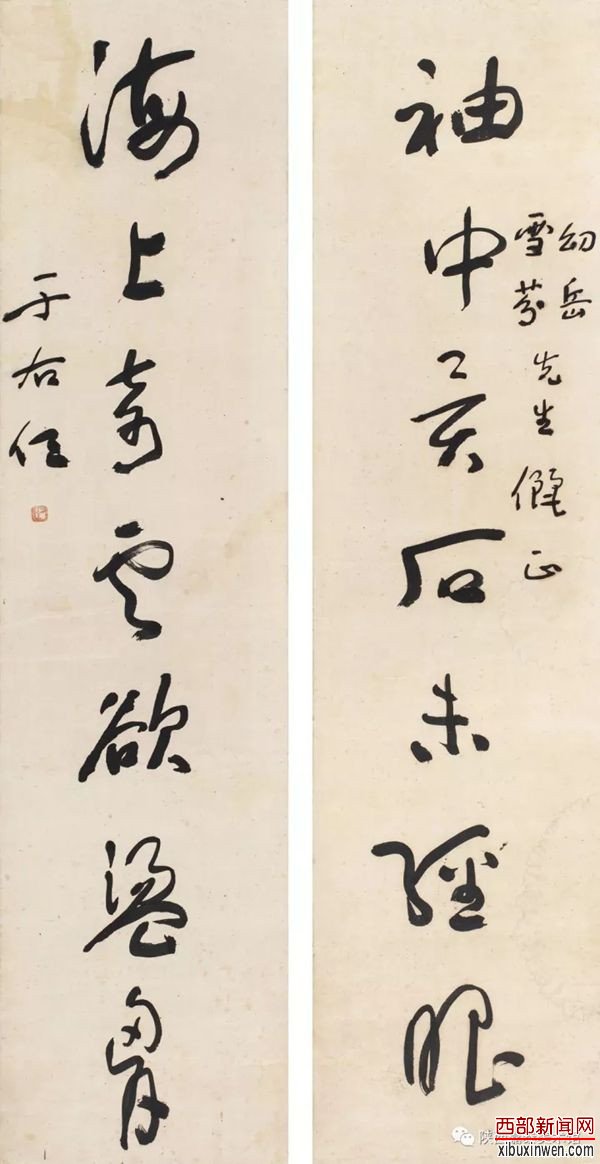 袖中異石未經眼
幼岳
雪芬
先生儷正
海上奇雲欲盪胷
于右任
西部新闻网
xibuxinwen.com